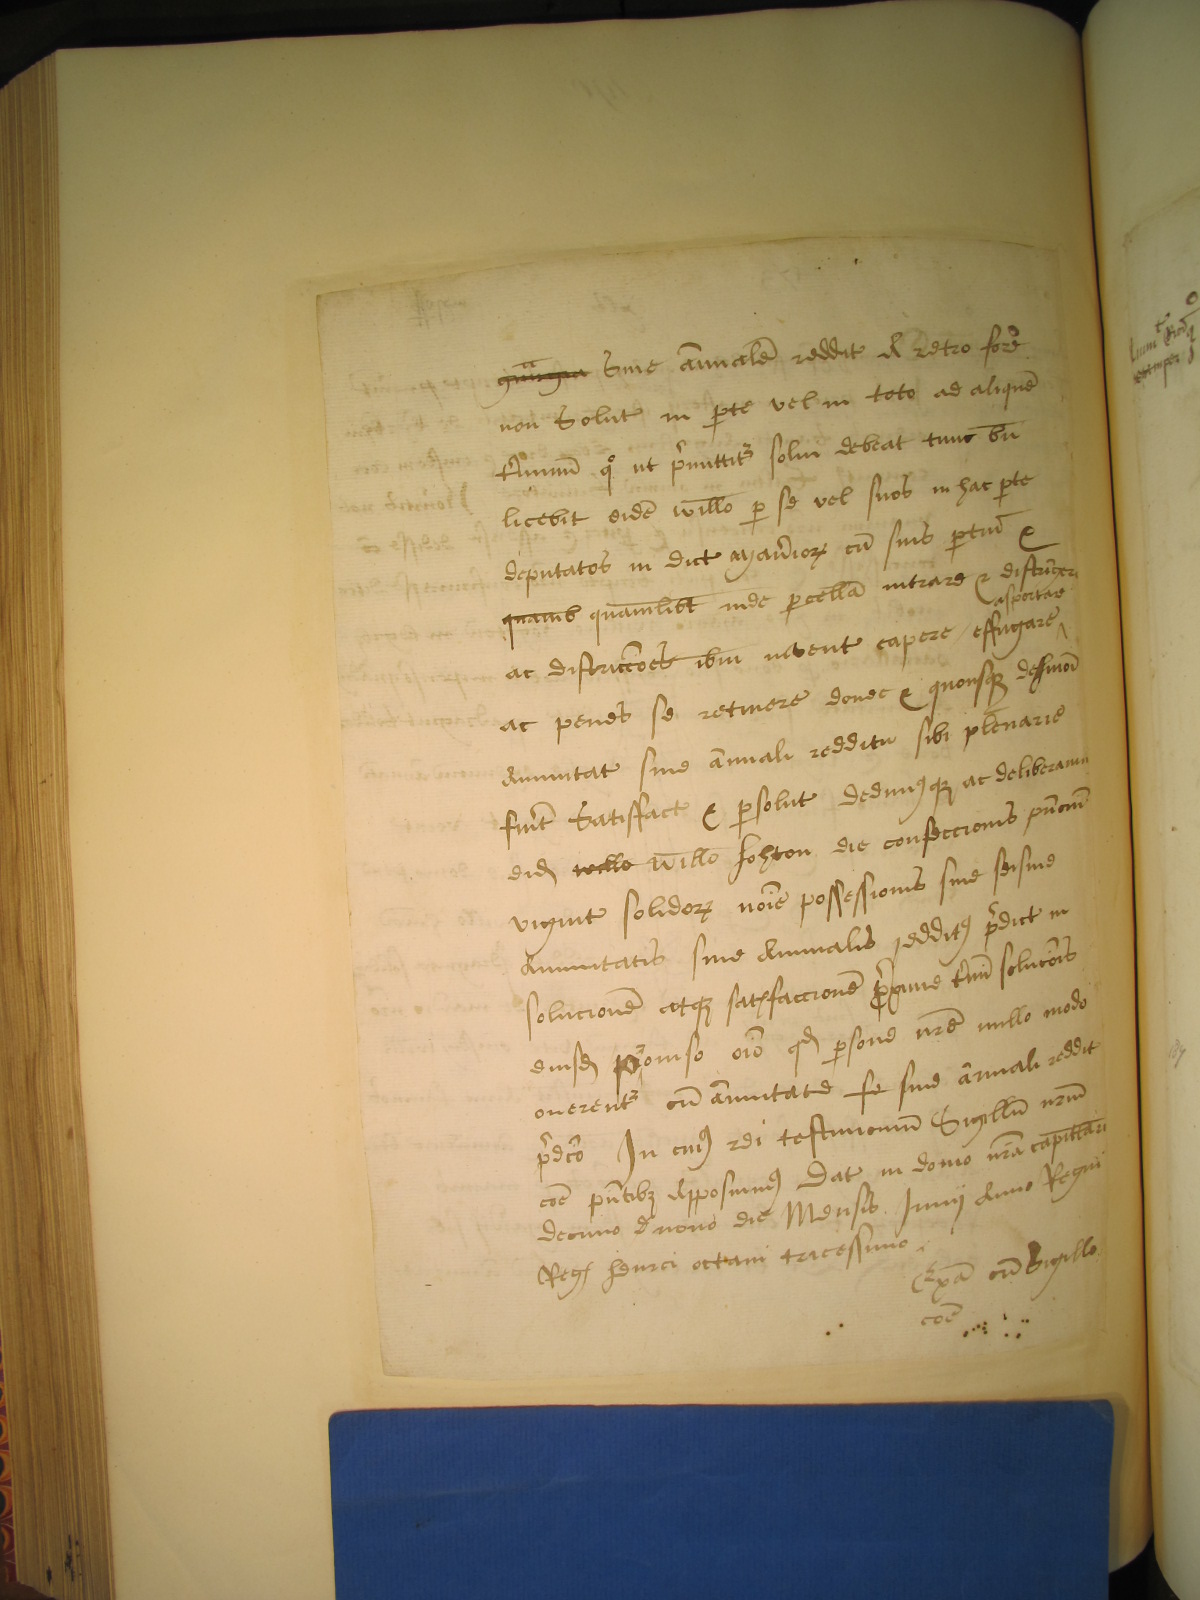 siue ānualē reddit A retro forē
non Solut in pte vel in toto ad aliquē
t̄minū qo ut p̄mittit᷑ solui debeat tunc bn̄
licebit eidē willo p se vel suos in hac pte
deputatos in dict Man̄ioꝝ cū suis ptin̄ &
quamlibt inde pcellā intrare & distrinḡe
asportare
ac districc̄oes ib̄m invent capere effugare
ac penes se retinere donec & quousqꝫ de
Annuitat siue ānuali redditu sibi plenarie
fuīt Satisfact & psolut dedimꝰqꝫ ac deliberauim
eidē willo willo Johson die confeccionis pn̄ciū
viginti solidoꝝ noīe possessionis siue seisine
Annuitatis siue Annualis redditꝰ p̄dict in
solucionē atqꝫ satisfaccionē t̄mī soluc̄ois
eiusdē prouiso oīo qd psone nr̄e nullo modo
onerent᷑ cū ānuitate se siue ānuali reddit
p̄dc̄o In cuiꝰ rei testimoniū Sigillū nrm̄
coē pn̄tibꝫ Apposuimꝰ Dat in domo nr̄a capitlari
decimo nono die Mensis Junij Anno Regni
Regꝭ henrici octaui tricessimo
Exā cū Sigillo
coē